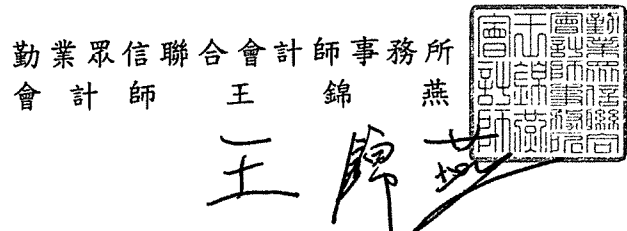 勤業眾信聯合會計師事務所
會計師 王錦燕
王錦燕
勤業眾信聯合會計師事務所會計師王錦燕